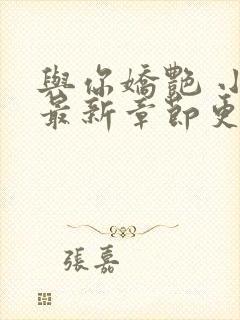 與你嬌艷 小
最新章節更
張嘉